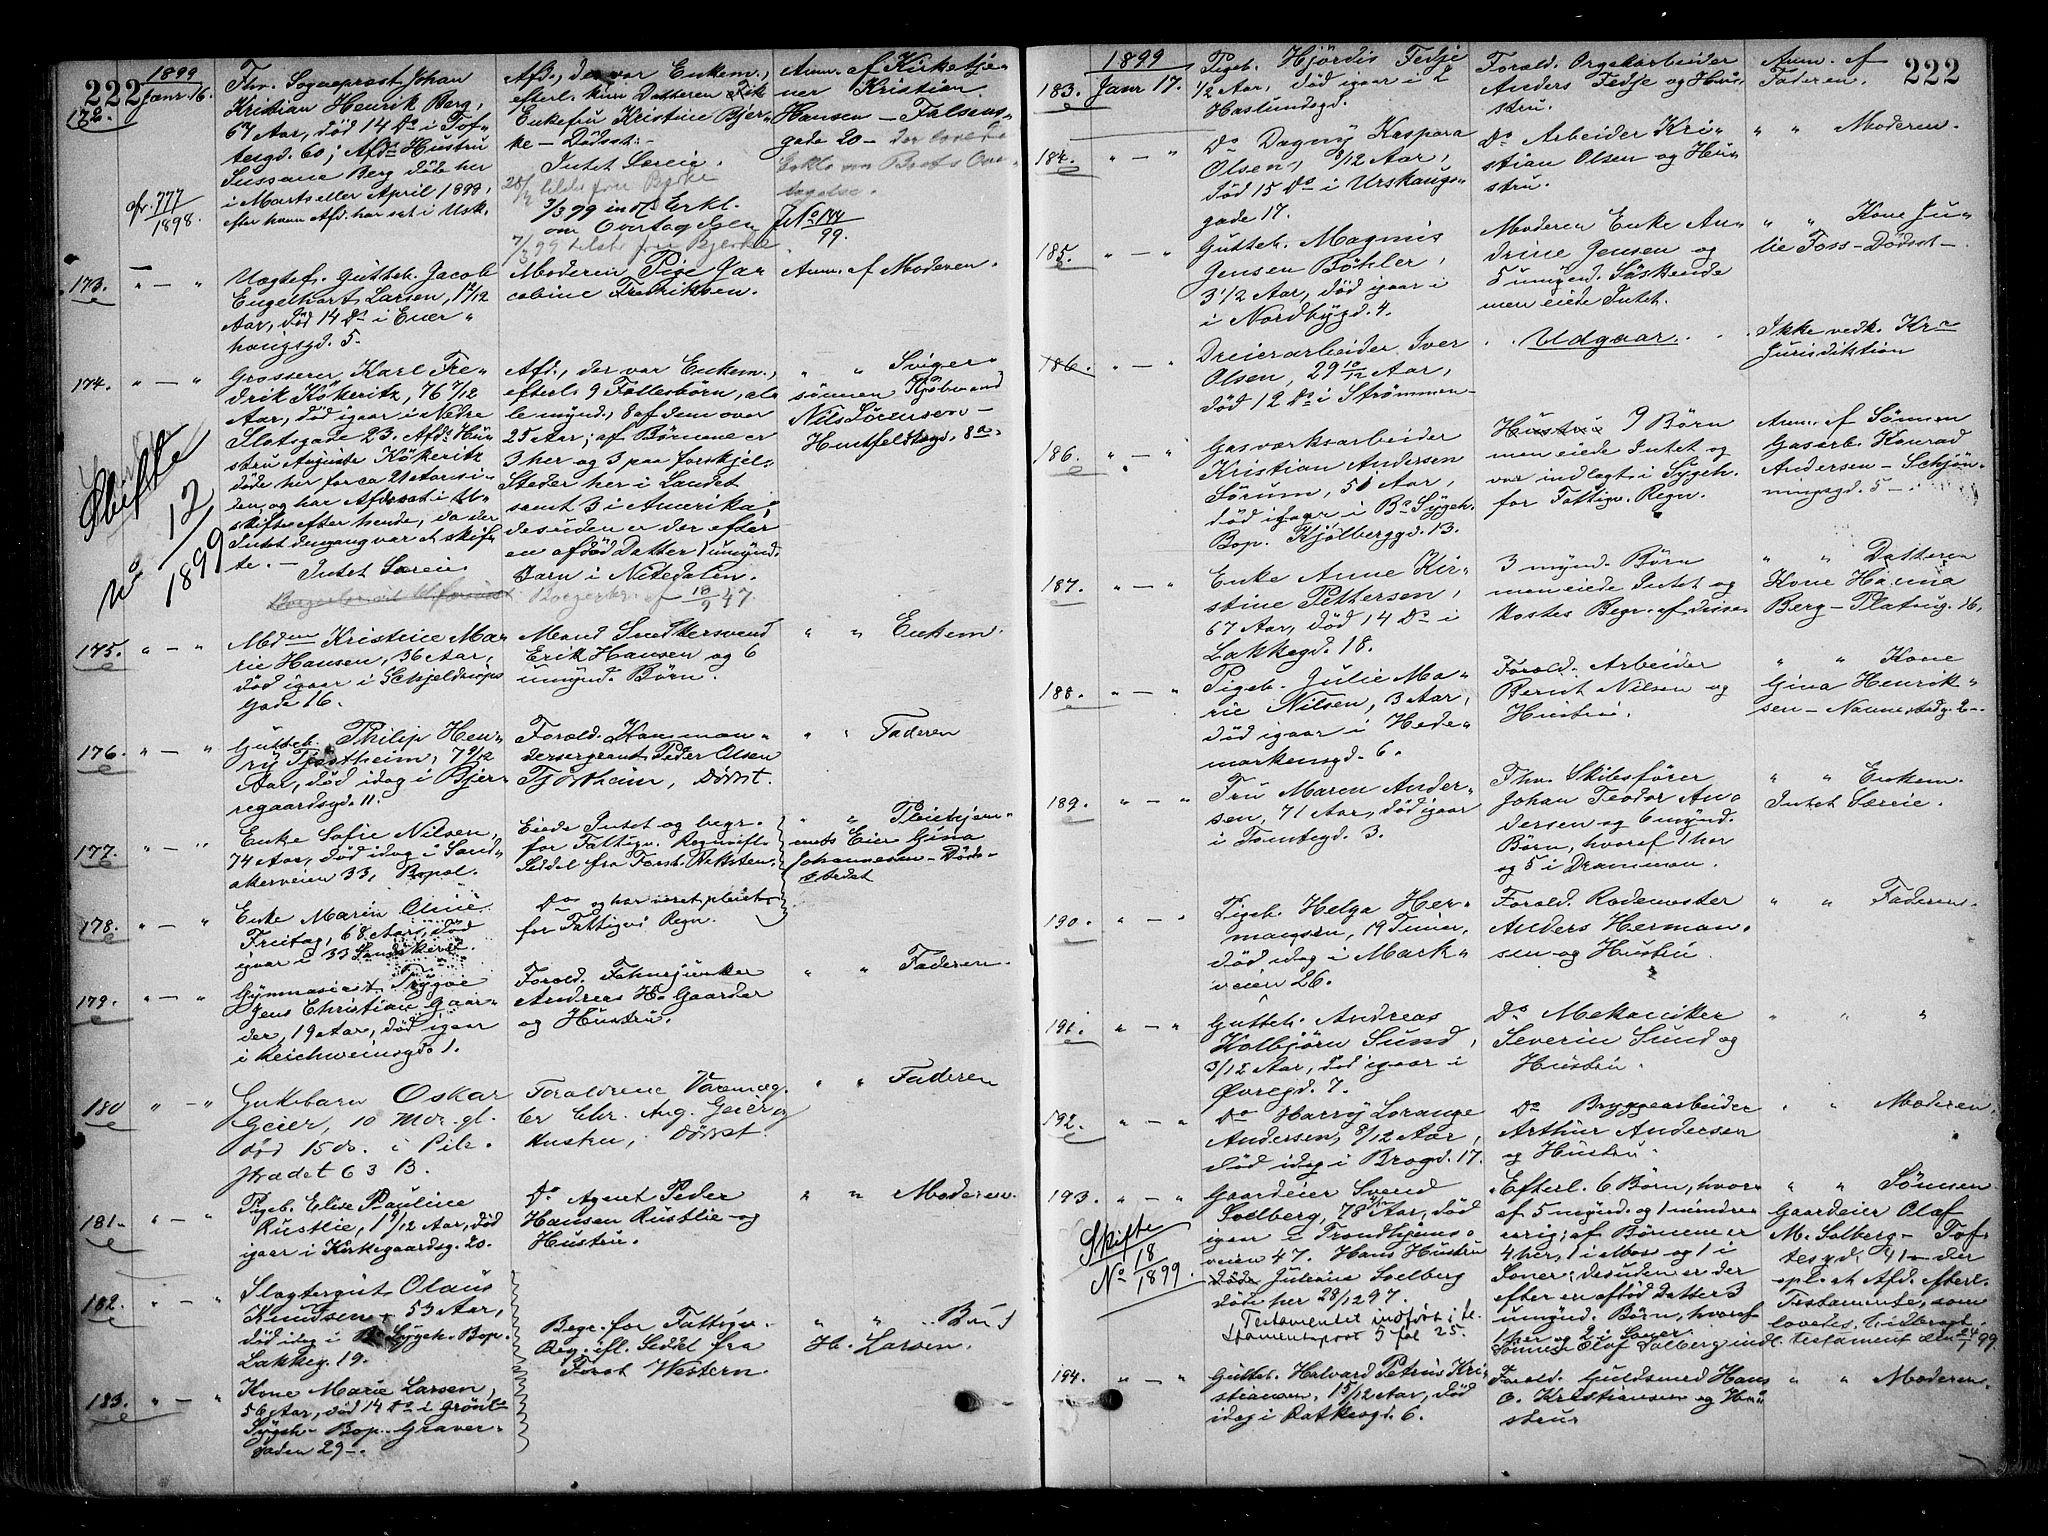 222
1899
Janr 16.
172.
cfr. 777
1898.
Fhv. Sogneprest Johan
Kristian Henrik Berg,
67 Aar, død 14 Ds i Tof-
tesgd. 60; Afds Hustru
Sussane Berg døde her
i Marts eller April 1898,
efter hvem Afd. har sat i Usk.
Afd., der var Enkem.,
efterl. kun Datteren
Enkefru Kristine Bjer-
ke – Dødsst. –
Intet Særeie.
3/3 99 indk. Erkl.
om Overtagelsen
Anm. af Kirketje-
ner Kristian
Hansen – Falsens-
gade 20 –
JNo 144
99.
173.
" — "
Uægtef. Gutteb. Jacob
Engelhart Larsen,
Aar, død 14 Ds i Ener-
haugsgd. 5.
Moderen Pige Ja-
cobine Fredriksen.
Anm. af Moderen.
174.
" — "
Skifte
No 12
1899
Grosserer Karl Fre-
drik Kökeritz, 76 7/12
Aar, død igaar i Nedre
Slotsgade 23. Afds Hu-
stru Auguste Kökeritz
døde her for ca 21 Aar si-
den, og har Afd. sat i U-
skifte efter hende, da der
Intet dengang var at skif-
te. –
Intet Særeie
Afd., der var Enkem.,
efterl. 9 Fællesbörn, al-
le mynd., 8 af dem over
25 Aar; af Börnene er
3 her og 3 paa forskjel.
Steder her i Landet
samt 3 i Amerika;
desuden er der efter
en afdöd Datter 1 umynd.
Barn i Nitedalen.
" " Sviger-
sönnen Kjöbmand
Nils Sörensen –
Huitfeldtsgd. 8a.
175.
" — "
Mdm Kristine Ma-
rie Hansen, 36 Aar,
död igaar i Schjeldrups
Gade 16.
Mand Snedkersvend
Erik Hansen og 6
umynd. Börn.
" " Enkem.
176.
" — "
Gutteb. Philip Hen-
ry Tjöstheim, 7 9/12
Aar, död idag i Bjer-
regaardsgd. 11.
Foræld. Komman-
dersergeant Peder Olsen
Tjöstheim, Dödsst.
" " Faderen
177.
" — "
Enke Sofie Nilsen,
74 Aar, död idag i Sand-
akerveien 33, Bopæl.
Eiede Intet og begr.
for Fattigv. Regn. ifl.
Seddel fra Forst.
" " Pleiehjem-
mets Eier Gina
Johannesen – Döds-
stedet
178.
" — "
Enke Maren Oline
Freitag, 68 Aar, död
igaar i 33 Sandakervei.
Do og har været pleiet
for Fattigv. Regn.
179.
" — "
Gymnasiast Trygve
Jens Christian Gaar-
der, 19 Aar, död igaar
i Reichweinsgd. 1.
Foræld. Fahnejunker
Andreas H. Gaarder
og Hustru.
" " Faderen.
180
" — "
Guttebarn Oskar
Geier, 10 Mdr. gl.
död 15 ds. i Pile-
stradet 63 B.
Forældrene Varemæg-
ler Chr. Aug. Geier og
Hustru, Dödsst.
" " Faderen
181.
" — "
Pigeb. Elise Pauline
Rustlie, 1 9/12 Aar, död
igaar i Kirkegaardsg. 20.
Do Agent Peder
Hansen Rustlie og
Hustru.
" " Moderen.
182.
" — "
Slagtergut Olaus
Knudsen – 53 Aar,
död idag i Bs Sygeh. Bop.
Lakkeg. 19.
Begr. for Fattigv.
Reg. ifl. Seddel fra
Forst Western.
" " Bud
H. Larsen.
183.
" — "
Kone Marie Larsen,
56 Aar, död 14 Ds i Grönl.
Sygeh – Bop. Graver-
gaden 29 –.
222
1899
183.
Janr 17.
Pigeb. Hjördis Fedje
1/2 Aar, död igaar i
Haslundsgd.
Foræld. Orgelarbeider
Anders Fedje og Hu-
stru.
Anm. af
Faderen.
184.
" — "
Do Dagny Kaspara
Olsen, 8/12 Aar,
död 15 Ds i Urskaugs-
gade 17.
Do Arbeider Kri-
stian Olsen og Hu-
stru.
" " Moderen.
185.
" — "
Gutteb. Magnus
Jensen Böhler,
3 1/2 Aar, död igaar i
i Nordbygd. 4.
Moderen Enke An-
drine Jensen og
5 umynd. Söskende
men eiede Intet.
" " Kone Ju-
lie Foss – Dödsst –
186.
Dreierarbeider Iver
Olsen, 29 10/12 Aar,
död 12 Ds i Strömmen –
Udgaar.
Ikke vedk. Kra
Jurisdiktion
186.
" — "
Gasværksarbeider
Kristian Andersen
Sörum, 51 Aar,
död igaar i Bs Sygeh.
Bop. Kjölberggd. 13.
Hustru 9 Börn
men eiede Intet og
var indlagt i Sygeh.
for Fattigv. Regn.
Anm. af Sönnen
Gasarb. Konrad
Andersen – Schjön-
ningsgd. 5 –
187.
" — "
Enke Anne Kir-
stine Pettersen,
67 Aar, död 14 Ds i
Lakkegd. 18.
3 mynd. Börn
men eiede Intet og
kostes Begr. af disse.
" " Datteren
Kone Hanna
Berg – Platoug. 16.
188.
" — "
Pigeb. Julie Ma-
rie Nilsen, 3 Aar,
död igaar i Hede-
markensgd. 6.
Foræld. Arbeider
Bernt Nilsen og
Hustru.
" " Kone
Gina Henrik-
sen – Nannestadg. 2 –
189.
" — "
Fru Maren Ander-
sen, 71 Aar, död igaar
i Tomtegd. 3.
Fhv. Skibsförer
Johan Teodor An-
dersen og 6 mynd.
Börn, hvoraf 1 her
og 5 i Drammen.
" " Enkem.
Intet Særeie.
190.
" — "
Pigeb. Helga Her-
mansen, 19 Timer,
död idag i Mark-
veien 26.
Foræld. Rodemester
Anders Herman-
sen og Hustru
" " Faderen.
191.
" — "
Gutteb. Andreas
Kolbjörn Sund,
3/12 Aar, död igaar i
Øvregd. 7.
Do Mekaniker
Severin Sund og
Hustru.
" " "
192.
" — "
Do Harry Lorange
Andersen, 8/12 Aar,
död idag i Brogd. 17.
Do Bryggearbeider
Arthur Andersen
og Hustru.
" " Moderen.
193.
" — "
Skifte
No 18
1899.
Gaardeier Svend
Solberg, 78 Aar, död
igaar i Trondhjems-
veien 47. Hans Hustru
döde Juliane Solberg
döde her 28/12 97.
Testamentet indfört i te-
stamentsprot 5 fol 25.
Efterl. 6 Börn, hvor-
af 5 mynd. og 1 mindre-
aarig; af Börnene er
4 her, 1 i Moss og 1 i
Soner; desuden er der
efter en afdöd Datter 3
umynd. Börn, hvoraf
1 her og 2 i Soner.
Sönnen Olaf Solberg indl. testament den
" " Sönnen
Gaardeier Olaf
M. Solberg – Tof-
tesgd. 41 – der
opl. at Afd. efterl.
Testamente, som
lovedes indbragt.
194.
" — "
Gutteb. Halvard Petrus Kri-
stiansen, 15/12 Aar, död
idag i Ratkesgd. 6.
Foræld. Guldsmed Hans
O. Kristiansen og Hu-
stru
" " Moderen.